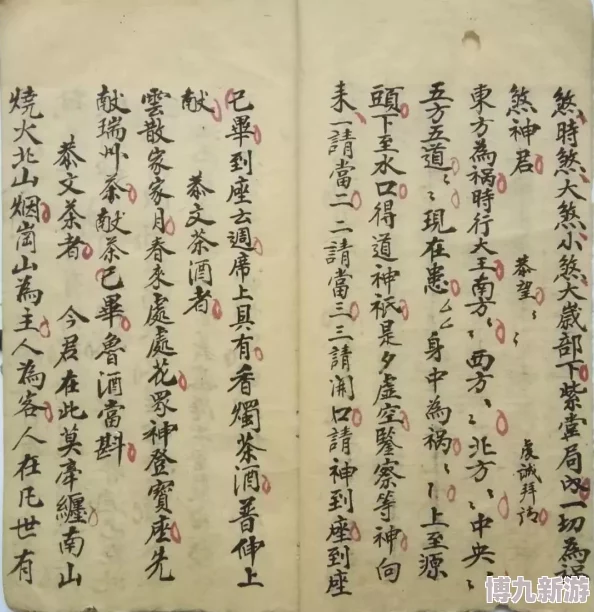 煞時煞大煞小煞大歲部下紫堂局內一切為禍
煞神君 恭望〻〻 虔誠拜請
東方為禍時行大王南方〻西方〻北方〻中央〻
五方五道〻〻現在患〻身中為禍〻〻上至源
頭下至水口得道神祇是夕虛空鑒察等神向
来一請當二二請當三三請開口請神到座到座
已畢到座云週席上具有香燭茶酒普伸上
献 恭文茶酒者
雲散家家月春來處處花眾神登寶座先
献瑞草茶献茶已畢魯酒當斟
恭文茶者 今君在此莫牽纏南山
燒火北山烟崗山為主人為客人在凡世有
博九新游